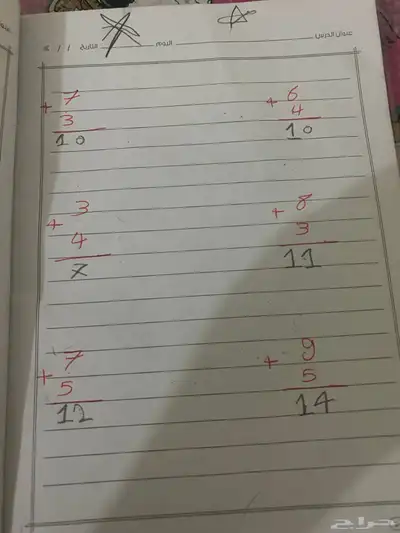 عنوان الدرس اليوم التاريخ / /
+ 7
3
10
+ 6
4
10
+ 3
4
7
+ 8
3
11
+ 7
5
12
+ 9
5
14
حراج